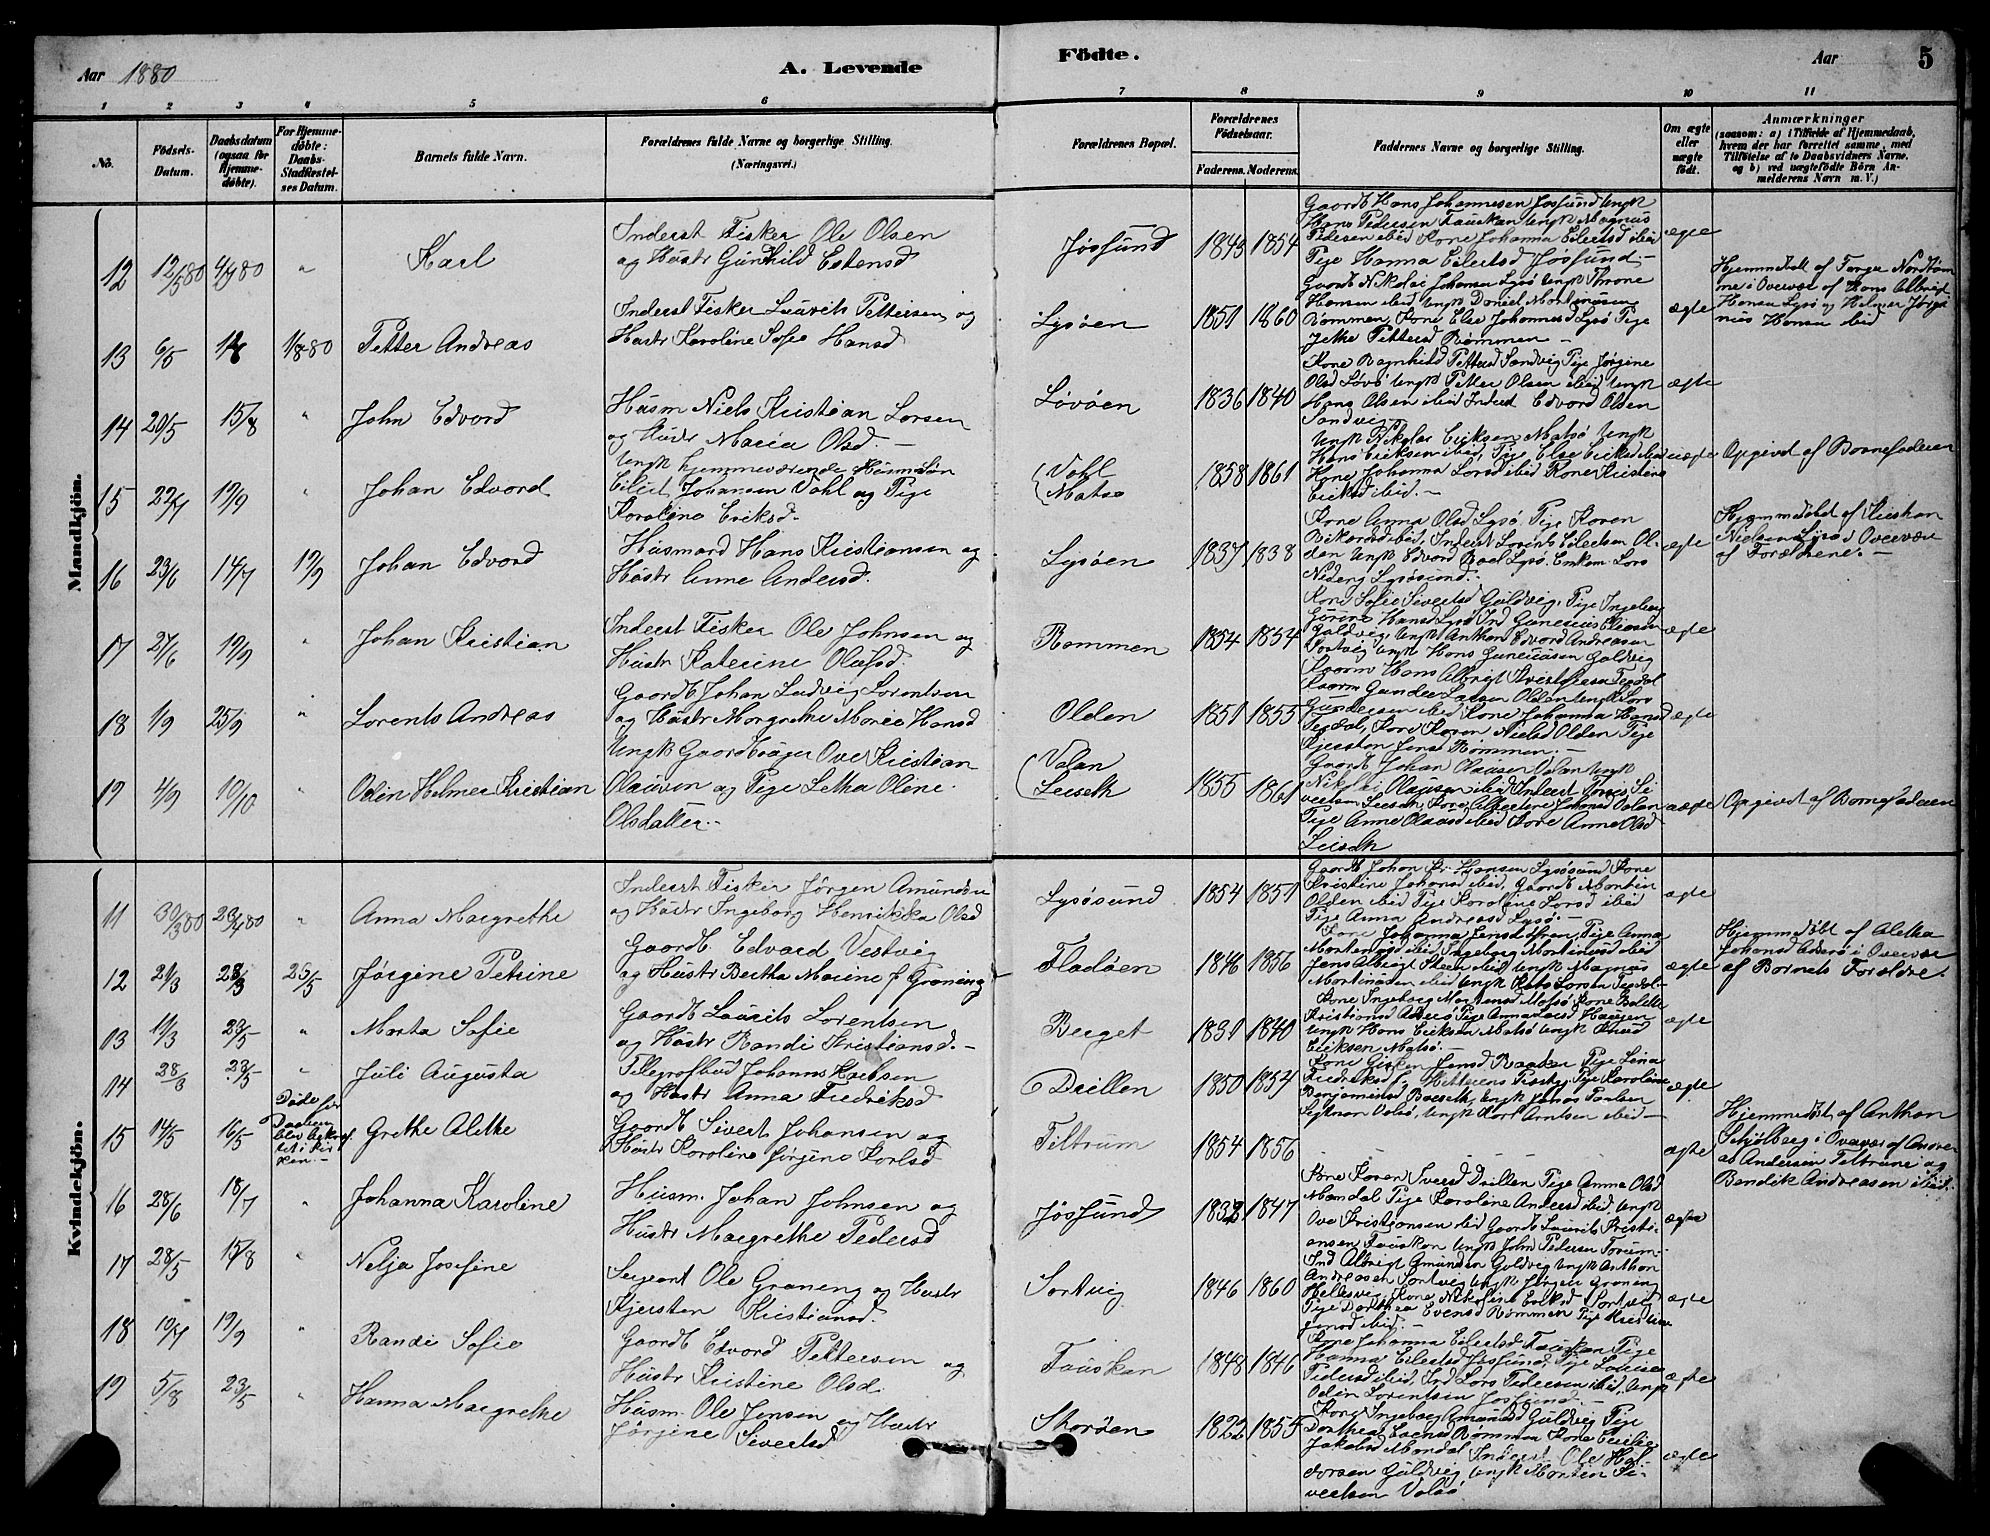 Aar 1880
A. Levende Födte.
Aar 5
1 2 3 4 5 6 7 8 9 10 11
No.
Födsels-Datum.
Daabsdatum (ogsaa for Hjemmedöbte).
For Hjemmedöbte: Daabs-Stadfæstelses Datum.
Barnets fulde Navn.
Forældrenes fulde Navne og borgerlige Stilling. (Næringsvei.)
Forældrenes Bopæl.
Forældrenes Födselsaar.
Faderens. Moderens.
Faddernes Navne og borgerlige Stilling.
Om ægte eller uægte födt.
Anmærkninger
(saasom: a) i Tilfælde af Hjemmedaab,
hvem der har forrettet samme, med
Tilföielse af to Daabsvidners Navne,
og b) ved uægtefödte Börn An-
melderens Navn m. V.)
Mandkjön.
12 12/5 80 4/7 80 " Karl
Inderst Fisker Ole Olsen
og Hustr Gunhild Estensd
Jøssund 1843 1854
Gaardb Hans Johannesen Jøssund Ungk
Hans Pedersen Fauskan Ungk Magnus
Pedersen ibid Kone Johanna Eilertsd ibid
Pige Hanna Eilertsd Jøssund.-
ægte
13 6/5 1/8 80 Petter Andreas
Inderst Fisker Laurits Pettersen og
Hustr Karoline Sofie Hansd
Lysøen 1851 1860
Gaardb Nikolai Johansen Lysø Ungk Throne
Hansen ibid Ungk Daniel Martinusen
Rømmen, Kone Else Johannesd Lysø Pige
Jethe Pettersd Rømmen -
ægte
Hjemmedøbt af Jørger Nordtøm
me i Overvær af Hans Albrigt
Hansen Lysø og Helmer Jørgi
nus Hansen ibid
14 20/5 15/8 " John Edvard
Husm Niels Kristian Larsen
og Hustr Maria Olsd -
Løvøen 1836 1840
Kone Ragnhild Pettersd Sandvig Pige Jørgine
Olsd Løvø Ungk Petter Olsen ibid Ungk
Hans Olsen ibid Inderst Edvard Olsen
Sandvig
ægte
15 22/7 19/9 " Johan Edvard
Ungk hjemmeværende Husm Søn
Eilert Johansen Vahl og Pige
Karoline Eriksd.
Vahl
Matsø
1858 1861
Ungk Nikolai Eriksen Matsø Ungk
Hans Eriksen ibid, Pige Else Eriksd ibid
Kone Johanna Larsd ibid Kone Kristine
Eriksd ibid. -
uægte Opgivet af Barnefaderen
16 23/6 14/7 19/9 Johan Edvard
Husmand Hans Kristiansen og
Hustr Anne Andersd.
Lysøen 1837 1838
Kone Anna Olsd Lysø Pige Karen
Rikardsd ibid, Inderst Lorents Eilertsen Ol-
den Ungk Edvard Roel Lysø. Enkem. Lars
Niderg Lysøsund.
ægte
Hjemmedøbt af Kristian
Nielsen Lysø i Overvær
af Forældrene. -
17 27/6 19/9 Johan Kristian
Inderst Fisker Ole Johnsen og
Hustr Katerine Olafsd.
Rømmen 1854 1854
Kone Sofie Sivertsd Guldvig, Pige Ingeborg
Gurine Hansd Lysø Ind Gunerius Eliasen
Guldvig Ungk Anthon Edvard Andreasen
Sortvig Ungk Hans Guneriusen Guldvig
ægte
18 1/9 25/9 " Lorents Andreas
Gaardb Johan Ludvig Lorentsen
og Hustr Margrethe Marie Hansd
Olden 1851 1855
Gaardm Hans Albrigt Kristofersen Teqdal
Gaardm Gunder Larsen Olden Ungk Lars
Gundersen ibid Kone Johanna Hansd
Teqdal, Kone Karen Nielsd Olden Pige
Kjersten Jensd Rømmen. -
ægte
19 4/9 10/10 " Odin Helmer Kristian
Ungk Gaardbruger Ove Kristian
Olausen og Pige Letha Oline
Olsdatter. -
Valan
Leiseth
1855 1861
Gaardb Johan Olausen Valan Ungk
Nikolai Olausen ibid Inderst Tøris Si-
vertsen Leiseth, Kone Albertine Johansd Valan
Pige Anne Olausd ibid Kone Anne Olsd
Leiseth
uægte Opgivet af Barnefaderen
Kvindekjön.
11 30/3 80 23/4 80 " Anna Margrethe
Inderst Fisker Jørgen Amundsen
og Hustr Ingeborg Henrikka Olsd
Lysøsund 1854 1851
Gaardb Johan Kr Hansen Lysøsund Kone
Kristine Johansd ibid, Gaardb Morten
Olden ibid Pige Karoline Larsd ibid
Pige Anna Andreasd Lysø. -
ægte
12 21/3 23/3 25/5 Jørgine Petrine
Gaardb. Edvard Vestvig
og Hustr Bertha Marine f Graning
Fladøen 1846 1856
Kone Johanna Jensd Afran, Pige Anna
Martinusd ibid Ingeborg Martinusd ibid
Jens Albrigt Steen ibid Ungk Magnus
Martinsen ibid Ungk Mats Larsen Teqdal -
ægte
Hjemmedøbt af Aletha
Johansd Asserø i Overvær
af Barnets Forældre.
13 11/3 23/5 " Marta Sofie
Gaardb Laurits Lorentsen
og Hustr Randi Kristiansd. -
Berget 1831 1840
Kone Ingeborg Martinsd Matsø Kone Bolette
Kristiansd Asserø Pige Anna Larsd Haugen
Ungk Hans Eriksen Matsø Ungk Knud
Eriksen Matsø. -
ægte
14 28/3 23/5 " Juli Augusta
Telegrafbud Johannes Karlsen
og Hustr Anna Fredriksd
Drillen 1850 1854
Kone Gisken Jensd Raaken Pige Lina
Fredriksd f, Hitterens Præstg., Pige Karoline
Benjaminsd Borseth, Ungk Jonas Paulsen
Sletnan Valsø, Ungk Karl Arntsen ibid -
ægte
15 14/5 16/5
Døde før
Daaben
blev bekræf
tet i Kir
ken. -
Grethe Alethe
Gaardb Sivert Johansen og
Hustr Karoline Jørgine Karlsd
Teltrum 1854 1856
ægte
Hjemmedøbt af Anthon
Schjølberg i Overvær af Andre
as Andersen Teltrum og
Bendik Andreasen ibid.
16 28/6 18/7 " Johanna Karoline
Husm. Johan Johnsen og
Hustr Margrethe Pedersd
Jøssund 1832 1847
Kone Karen Sversd Drillen Pige Anna Olsd
Mandal Pige Karoline Andersd ibid, Ungk
Ove Kristiansen ibid Gaardb Laurits Kristi-
ansen Fauskan Ungk John Pedersen Torum
ægte
17 28/5 15/8 " Nelja Josefine
Sergeant Ole Graning og Hustr
Kjersten Kristiansd.
Sortvig 1846 1860
Ind Albrigt Amundsen Guldvig Ungk Anthon
Andreasen Sortvig Ungk Jørgen Graning
Hellesvig, Kone Nikoline Eriksd Sortvig
Pige Dorthea Evensd Rømmen Pige Kristine
Jensd ibid. -
ægte
18 10/7 19/9 " Randi Sofie
Gaardb Edvard Pettersen og
Hustr Kristine Olsd.
Fauskan 1848 1846
Kone Johanna Eilertsd Fauskan Pige
Hanna Eilertsd Jøssund, Pige Laurine
Pedersd ibid. Ind Lars Pedersen ibid, Ungk
Odin Lorentsen Jøssund. -
ægte
19 5/8 23/5 " Hanna Margrethe
Husm. Ole Jensen og Hustr
Jørgine Sivertsd
Skarøen 1822 1855
Kone Ingeborg Amundsd Guldvig Pige
Dorthea Evensd Rømmen Kone Cecilie
Jakobsd Mandal Inderst Ole Hal-
dorsen Guldvig Ungk Morten Si-
vertsen Valsø
ægte